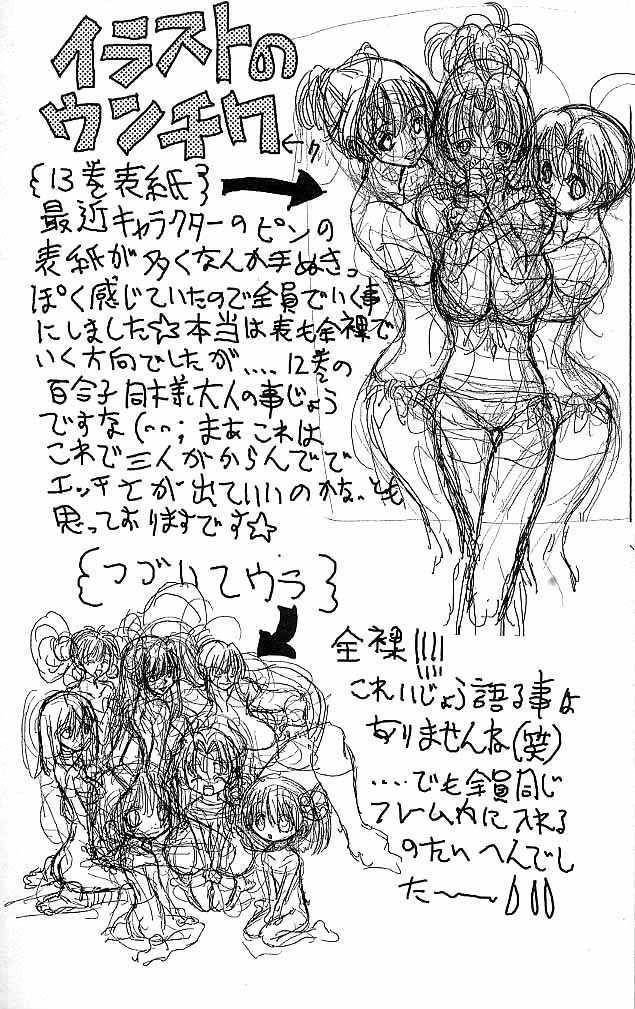 イラストの
ウンチク
{13巻表紙}
最近キャラクターのピンの
表紙が多くなんか手ぬきっ
ぽく感じていたので全員でいく事
にしました☆本当は表も全裸で
いく方向でしたが....12巻の
百合子同様大人の事じょう
ですな(^^;まあこれは
これで三人がからんでで
エッチさが出ていいのかな、とも
思っておりますです☆
{つづいてウラ}
全裸!!!!
これいじょう語る事は
ありませんね(笑)
....でも全員同じ
フレーム内に入れる
のたいへんでし
た〜〜